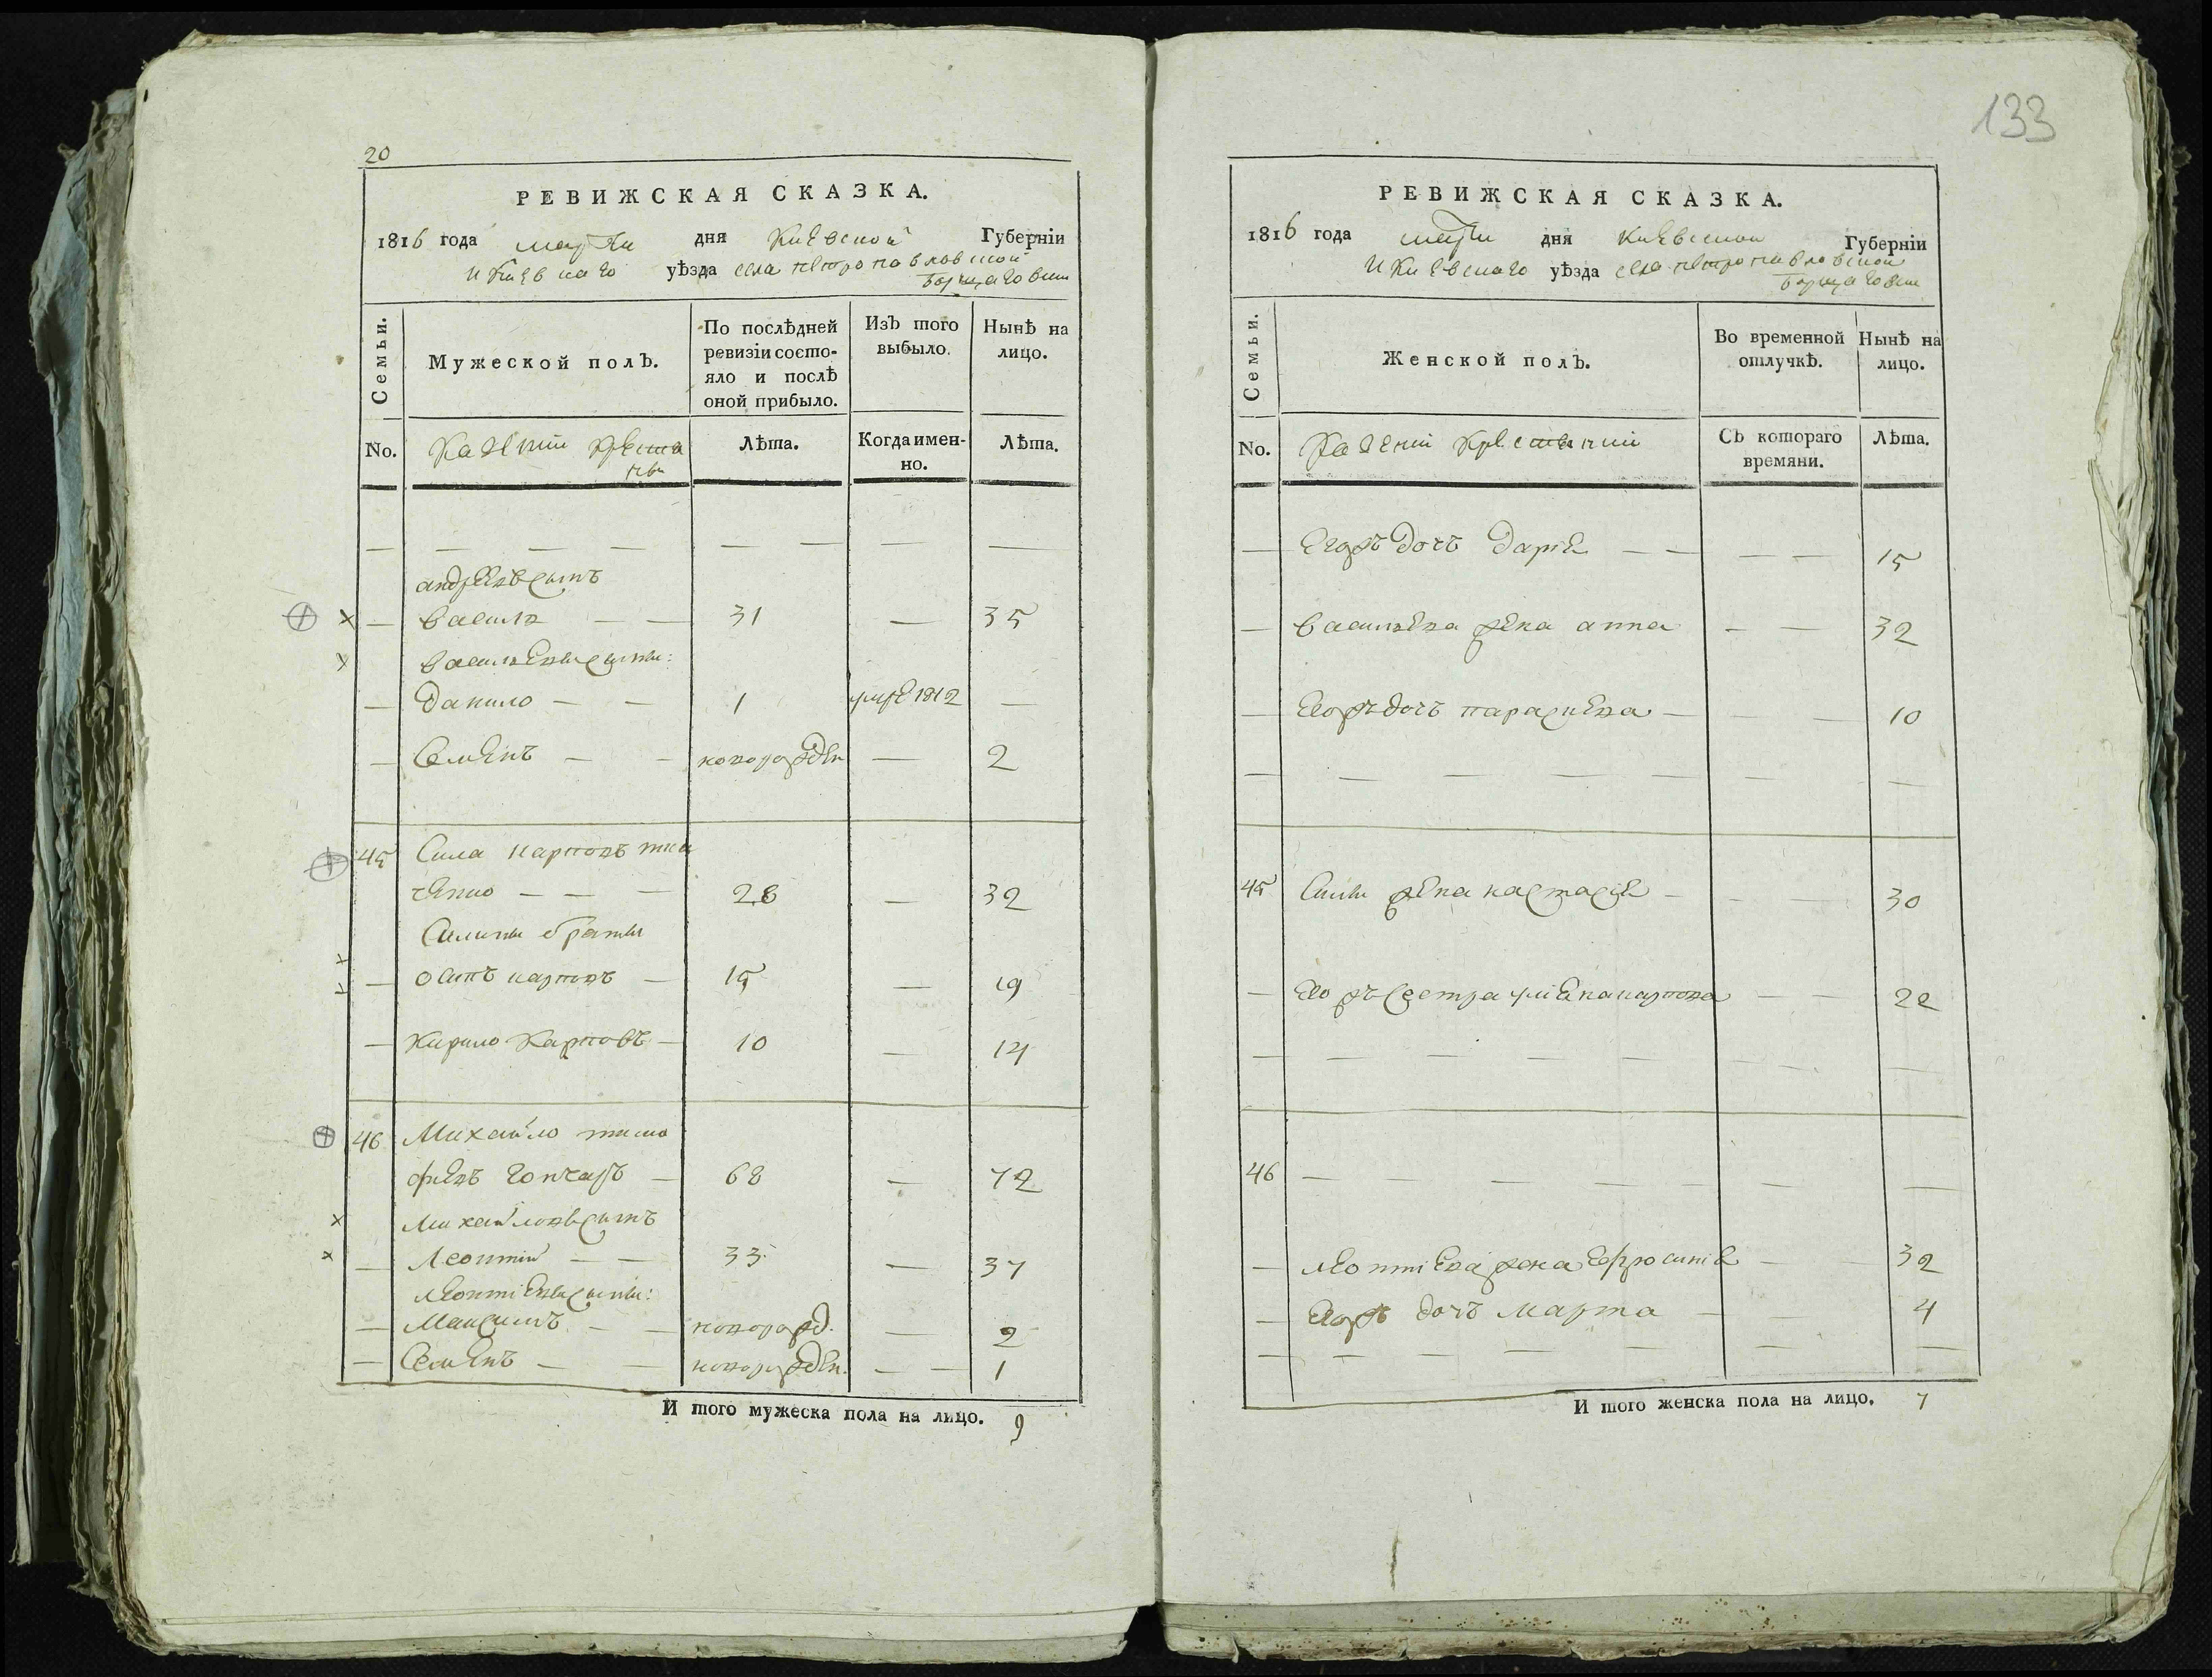 20
РЕВИЖСКАЯ СКАЗКА.
1816 года марта дня Киевской Губерніи
и Киевскаго уѣзда села петропавловской
Борщаговки
Семьи.
Мужеской полЪ.
По послѣдней ревизіи состо-
яло и послѣ
оной прибыло.
ИзЪ того
выбыло.
Нынѣ на
лицо.
No.
Казенни крестя
не
Лѣта.
Когда имен-
но.
Лѣта.
— — — — — — — —
андреевъ сынъ
— василь — — 31 — 35
васильевы сыны:
— данило — — 1 умре 1812 —
— Семенъ — — новорожден — 2
45 Сила карповъ тка
ченко — — — 28 — 32
Силины браты
— осипъ карповъ — 15 — 19
— Кирило Карповъ — 10 — 14
46 Михайло тимо
фиевъ гончаръ — 68 — 72
михайловъ сынъ
— Леонтий — — 33 — 37
леонтіевы сыны:
— Максимъ — — новорожд. — 2
— Семенъ — — новорожден. — — 1
И того мужеска пола на лицо. 9
133
РЕВИЖСКАЯ СКАЗКА.
1816 года марта дня Киевской Губерніи
и Киевскаго уѣзда села петропавловской
Борщаговки
Семьи.
Женской полЪ.
Во временной
отлучкѣ.
Нынѣ на
лицо.
No.
Казенни крестянки
СЪ котораго
времяни.
Лѣта.
— Егожъ дочь дарие — — — — 15
— васильева жена анна — — 32
— Егожъ дочь параскева — — — 10
— — — — — — — —
45 Силы жена настасие — — — 30
— Егожъ сестра улиена карпова — — 22
— — — — — — — —
46 — — — — — — —
— леонтіева жена Ефросиние — — 32
— Егожъ дочь марта — — 4
— — — — — — —
И того женска пола на лицо. 7